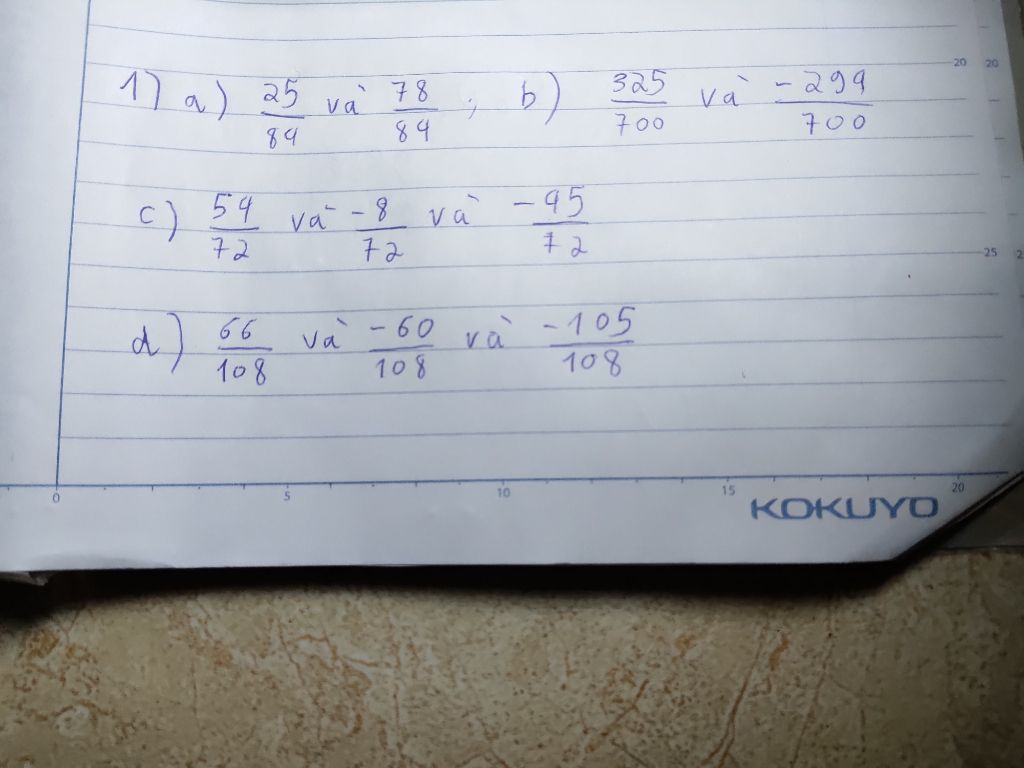 1) a) 25/84 và 78/84 ; b) 325/700 và -294/700
20 20
c) 54/72 và -8/72 và -45/72
25 2
d) 66/108 và -60/108 và -105/108
0 5 10 15 20
KOKUYO